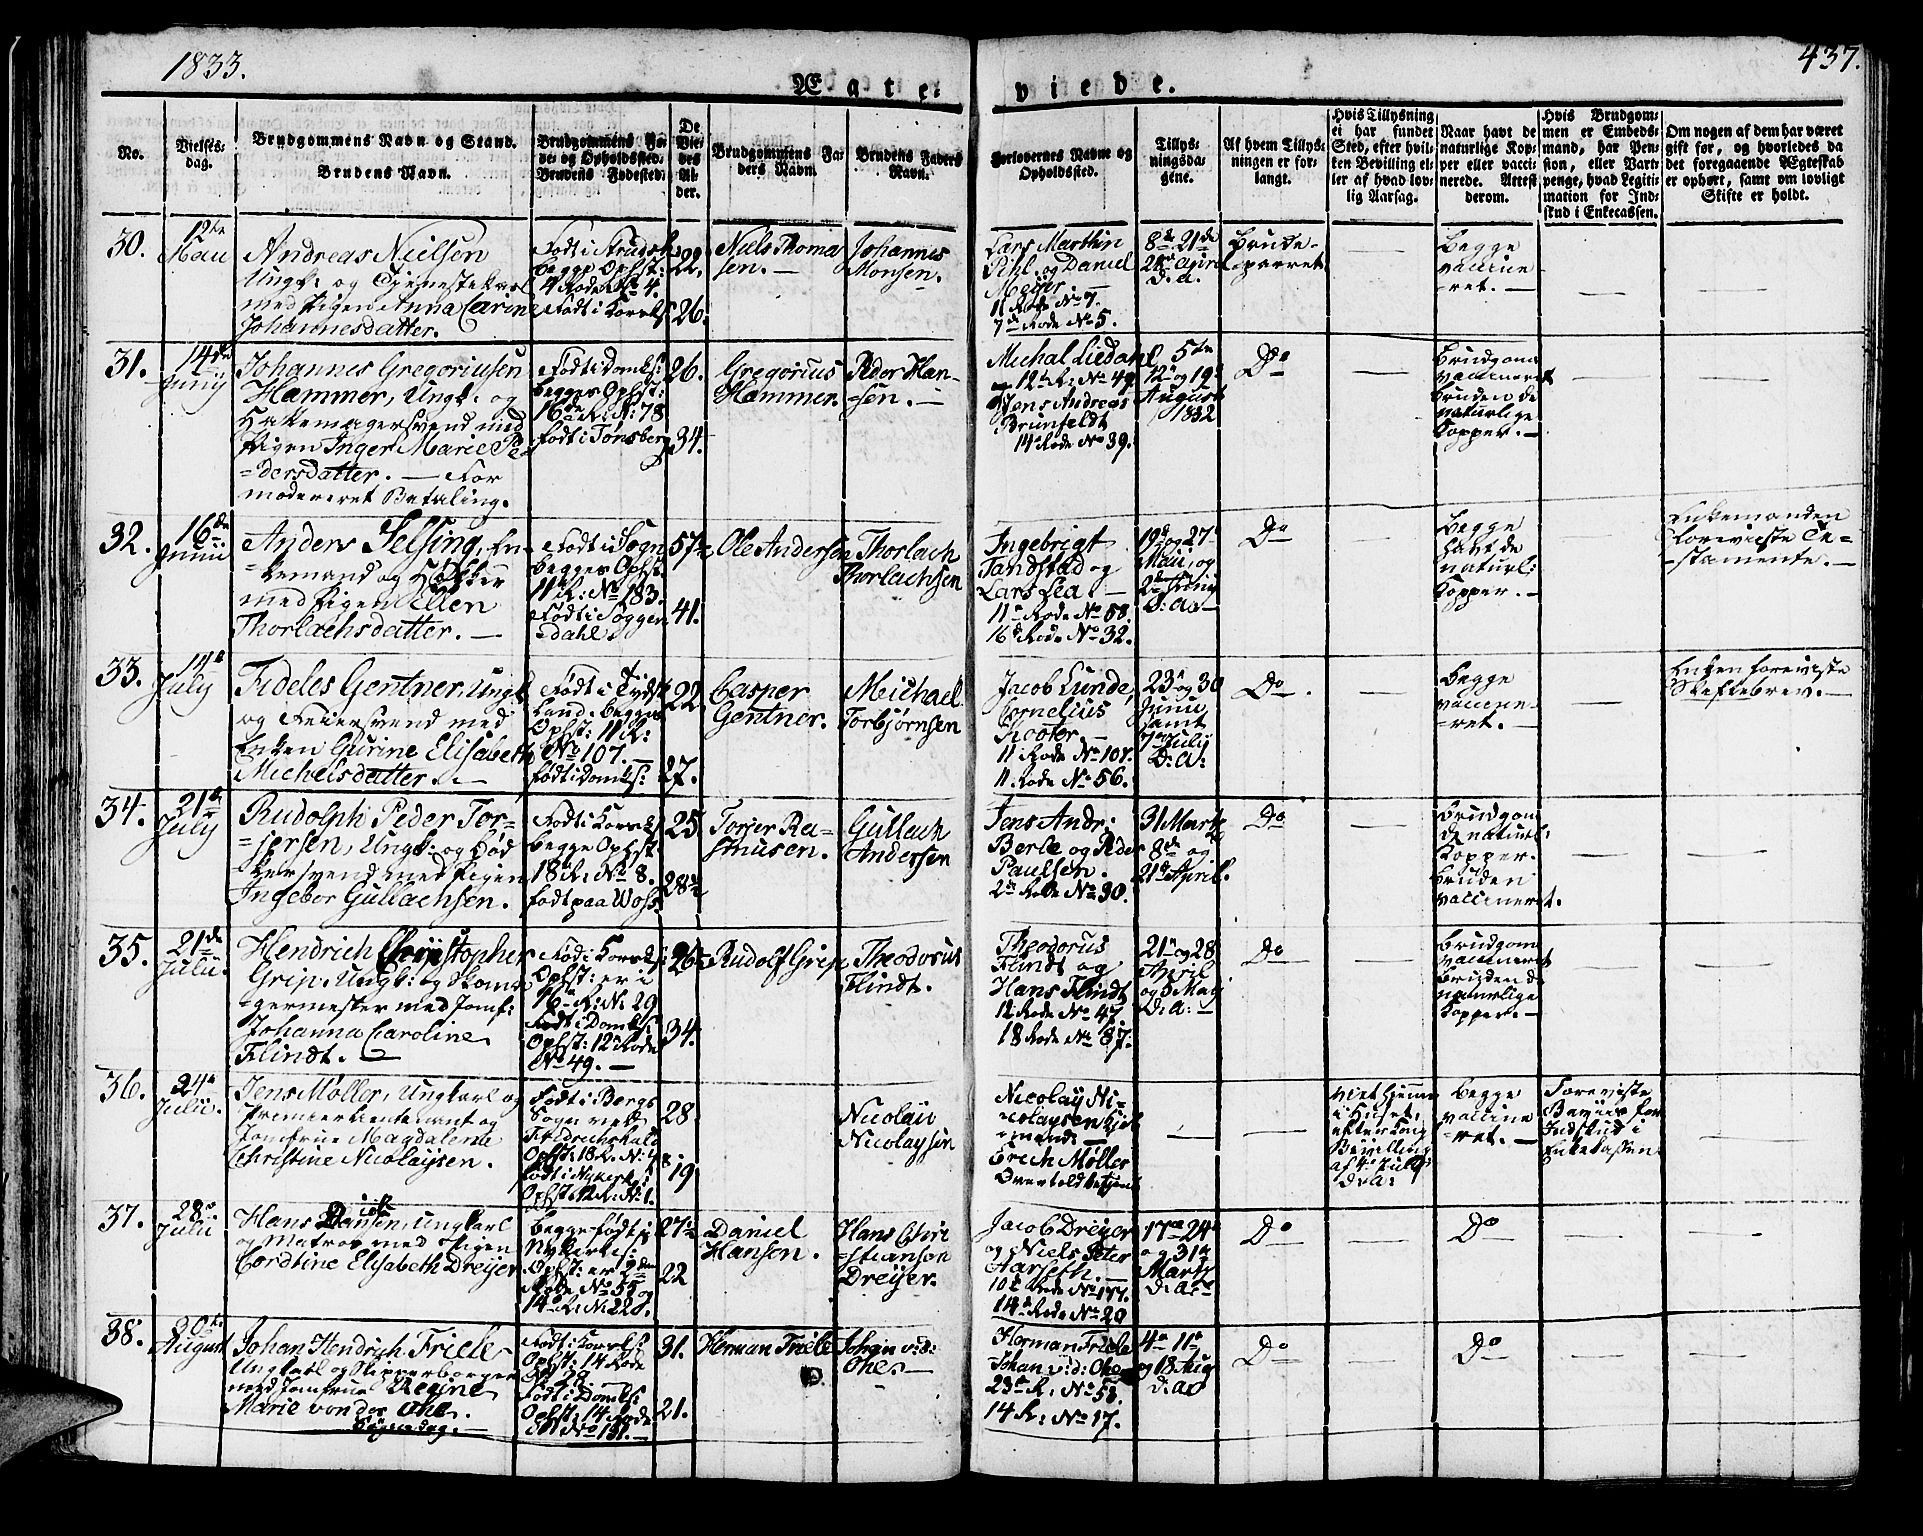 1833.
437.
Ægte-
viede.
No.
Vielses-
dag.
Brudgommens Navn og Stand.
Brudens Navn.
Brudgommens Fø-
de- og Opholdssted.
Brudens Fødested.
De
Vie-
des
Al-
der.
Brudgommens Fa-
ders Navn.
Brudens Faders
Navn.
Forlovernes Navne og
Opholdssted.
Tillys-
ningsda-
gene.
Af hvem Tillys-
ningen er for-
langt.
Hvis Tillysning
ei har fundet
Sted, efter hvil-
ken Bevilling el-
ler af hvad lov-
lig Aarsag.
Naar havt de
naturlige Kop-
per eller vacci-
nerede. Attest
derom.
Hvis Brudgom-
men er Embeds-
mand, har Pen-
sion, eller Vart-
penge, hvad Legiti-
mation for Ind-
skud i Enkecassen.
Om nogen af dem har været
gift før, og hvorledes da
det foregaaende Ægteskab
er ophørt, samt om lovligt
Skifte er holdt.
30.
12te
Maii
Andreas Nielsen
Ungk: og Tjenestekarl
med Pigen Anna Carine
Johannesdatter.
begge Ophst:
4 Rode No 4.
22.
26.
Niels Thoma
sen. —
Johannes
Monsen.
Lars Marthin
Pihl, og Daniel
Meyer. —
11 Rode No 7.
7de Rode No 5.
8de 21de
28de April
d. a.
Brude-
parret.
—
Begge
vaccine
-ret. —
—
—
31.
14de
Junij
Johannes Gregoriusen
Hammer, Ungk: og
Hattemagersvend med
Pigen Inger Marie Pe
-dersdatter. — For
modereret Betaling.
Født i Domks:
begges Ophst:
16de R: N: 78
født i Tønsberg
26.
34.
Gregorius
Hammer.
Peder Han-
sen. —
Michal Liedahl
12te R: No 49.
og Jens Andreas
Brunfeldt
14de Rode No 39.
5te
12te og 19de
August
1832
Do
—
Brudgom
vaccineret
Bruden de
naturlige
Kopper. —
—
—
32.
16de
Junii
Anders Selsing, En-
-kemand og Høkker
med Pigen Ellen
Thorlachsdatter. —
Født i Sogn
begges Ophst.
11te R: No 183.
Født i Soggen
dahl.
57½
41.
Ole Andersen
Thorlach
Thorlachsen
Ingebrigt
Tandstad og
Lars Lea. —
11te Rode No 58.
16de Rode No 32.
19de og 27.
Maii, og
2de Junij
d: a. —
Do
—
Begge
havt de
naturl:
Kopper. —
—
Enkemanden
foreviste Te-
-stamente. —
33.
14de
July
Fideles Gentner, Ungk:
og Feiersvend med
Enken Gurine Elisabeth
Michelsdatter. —
Født i Tydsk
land. begges
Ophst: 11 R:
No 107. —
født i Domks:
22.
27.
Casper
Gentner.
Michael
Torbjørnsen
Jacob Lunde,
Cornelius
11 Rode No 107.
11. Rode No 56.
23de og 30
Junii
samt
7de July
d: a:
Do
—
Begge
vaccine-
-ret.
—
Enken foreviste
Skiftebrev. —
34.
21de
July
Rudolph Peder Tor-
-jersen, Ungk: og Bød
kersvend med Pigen
Ingebor Gullachsen.
Født i Korsks:
begge Ophst:
18 R: No 8.
født paa Woss.
25.
28½
Torjer Ra-
smusen.
Gullach
Andersen
Jens Andr:
Berle og Peder
Paulsen.
2de Rode No 30.
31 Marts
8de og
21de April.
Do
—
Brudgom
de naturl:
Kopper.
Bruden
vaccineret.
—
—
35.
21de
Julii.
Hendrich Christopher
Grip, Ungk: og Skoma
germester med Jomf:
Johanna Caroline
Flindt. —
Fød i Korsks:
Ophst: er i
16de R: N. 29
Født i Domks:
Ophst: 12te Rode
No 49. —
26½
34.
Rudolf Grip
Theodorus
Flindt.
Theodorus
Flindt og
Hans Flindt
12 Rode No 47.
18 Rode No 87.
21de og 28
April
og 5 May
d: a: —
Do
—
Brudgom
vaccineret
Bruden de
naturlige
Kopper. —
—
—
36.
24de
Julii.
Jens Møller, Ungkarl og
Premierlieutenant og
Jomfrue Magdalena
Christine Nicolaysen.
Født i Bergs
Sogn ved
Fridrichshald
Ophst: 18 R. N: 48.
født i Nykerk:
Ophst: 12 R: N: 1.
28
19
Nicolaii
Nicolaysen
Nicolay Ni-
-colaysen Kjøb
-mand. —
Erich Møller
—
—
viet hjemme
i Huset,
efter Kong
Bevilling
af 4de July
d: a:
Begge
vaccine
-ret. —
Foreviste
Beviis for
Indskud i
Enkekassen
—
37.
28de
Julii
Hans Danielsen, Ungkarl
og Matros med Pigen
Cordtine Elisabeth Dreyer
begge født i
Nykerks:
Ophst: er 9den
Rode No 35 og
14de R: N. 220.
27½
22
Daniel
Hansen.
Hans Chri
-stiansen
Dreyer.
Jacob Dreyer
og Niels Peter
Harseth. —
10de Rode No 177.
14de Rode No 20
17de 24de
og 31de
Marts
d: a. —
Do
—
Do
—
—
38.
20de
August
Johan Hendrich Friele
Ungkarl og Skipperborger
med Jomfrue Regine
Marie von der Ohe.
Født i Korsks:
Ophst: 14 Rode
N 28. —
Født i Domks:
Ophst: 14 Rode
No 131. —
31.
21.
Herman Friele
Johan v: d:
Ohe. —
Herman Friele
Johan v: d: Ohe
23de R: No 58.
14 R: No 17.
4de 11te
og 18 Aug
d: a
Do
—
Do
—
—